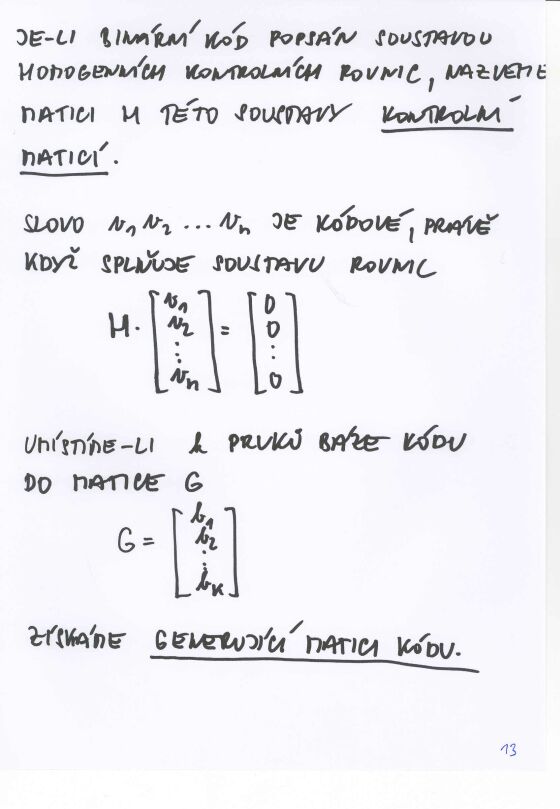 JE-LI BINÁRNÍ KÓD POPSÁN SOUSTAVOU
HOMOGENNÍCH KONTROLNÍCH ROVNIC, NAZVEME
MATICI M TÉTO SOUSTAVY KONTROLNÍ
MATICÍ.
SLOVO v₁ v₂ ... vₙ JE KÓDOVÉ, PRÁVĚ
KDYŽ SPLŇUJE SOUSTAVU ROVNIC
M · [v₁ v₂ ⋮ vₙ] = [0 0 ⋮ 0]
UMÍSTÍME-LI k PRVKŮ BÁZE KÓDU
DO MATICE G
G = [b₁ b₂ ⋮ bₖ]
ZÍSKÁME GENERUJÍCÍ MATICI KÓDU.
13